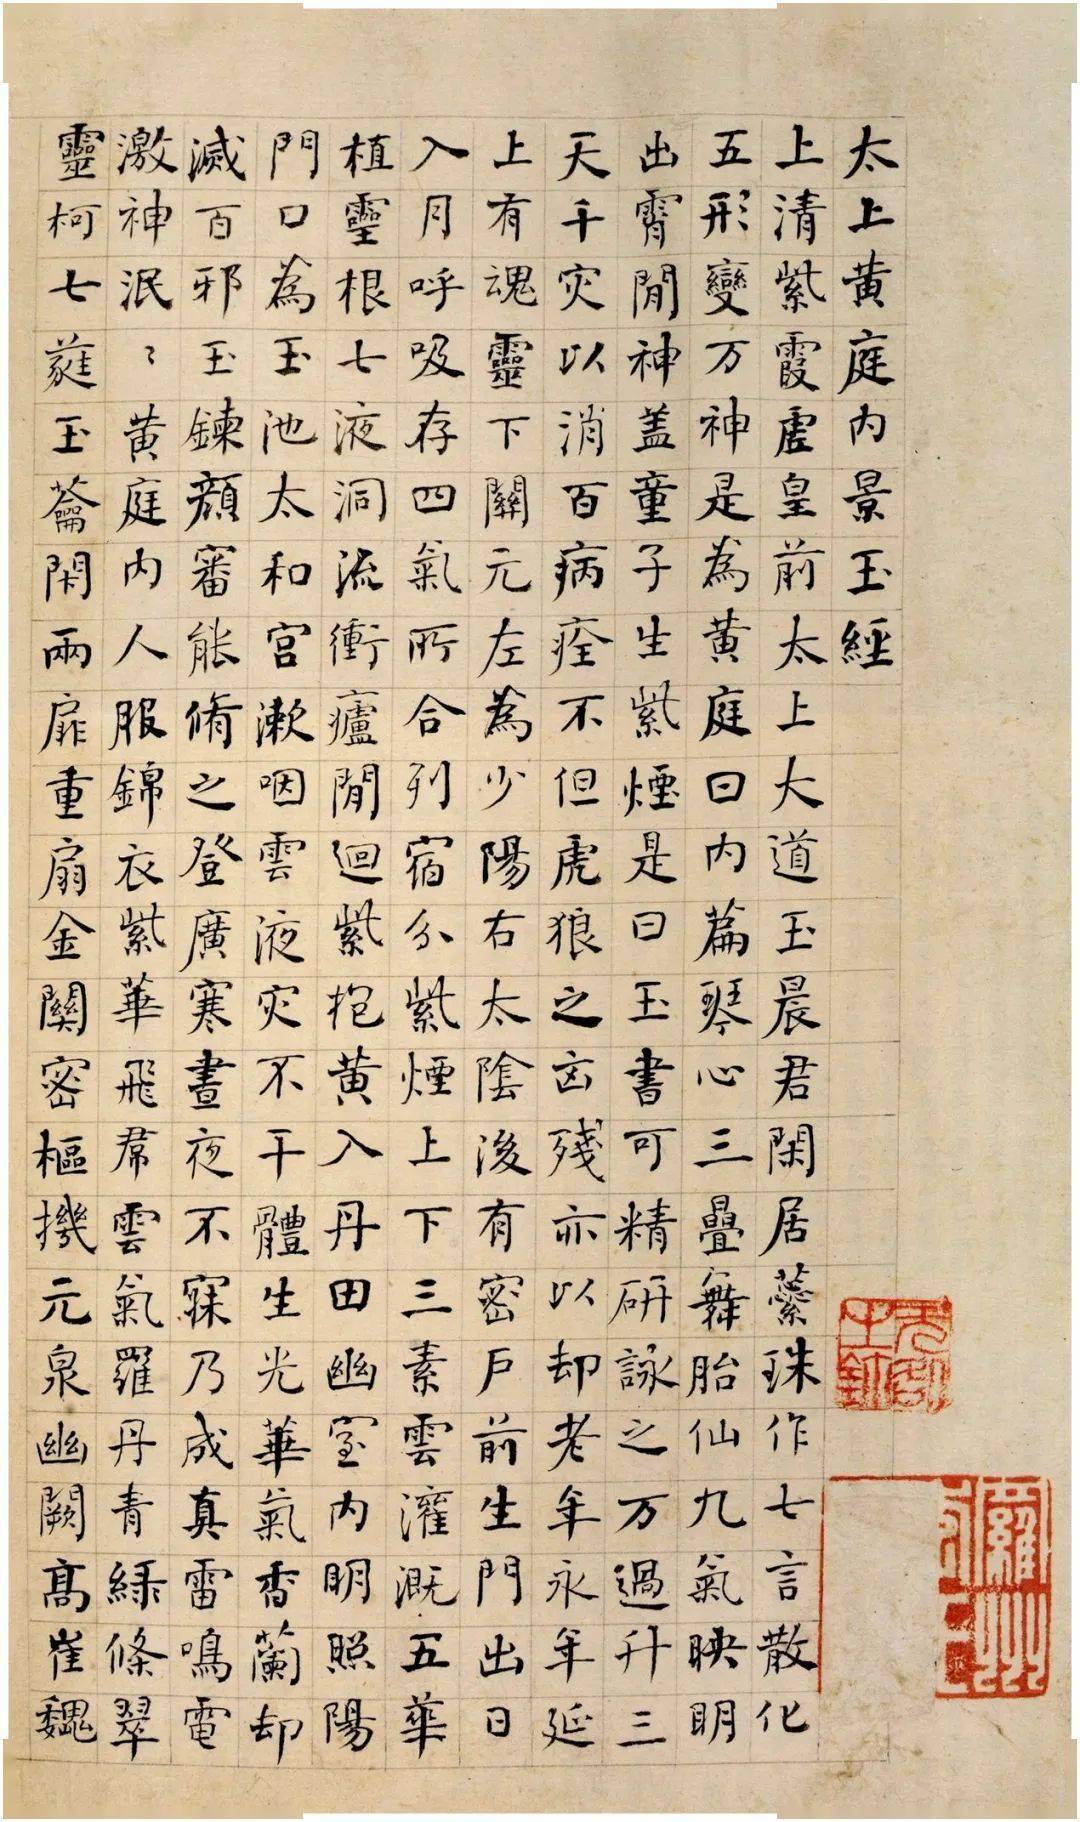 太上黄庭内景玉經
上清紫霞虚皇前太上大道玉晨君閑居蘂珠作七言散化
五形變万神是為黄庭曰内篇琴心三疊舞胎仙九氣映明
出霄間神盖童子生紫煙是曰玉書可精研詠之万過升三
天千灾以消百病痊不但虎狼之凶殘亦以却老年永年延
上有魂靈下關元左為少陽右太陰後有密戶前生門出日
入月呼吸存四氣所合列宿分紫煙上下三素雲灌溉五華
植靈根七液洞流衝廬間迴紫抱黄入丹田幽室内明照陽
門口為玉池太和宫漱咽雲液灾不干體生光華氣香蘭却
滅百邪玉鍊顔審能脩之登廣寒晝夜不寐乃成真雷鳴電
激神泯〻黄庭内人服錦衣紫華飛帬雲氣羅丹青緑條翠
靈柯七蕤玉籥閑兩扉重扇金關密樞機元泉幽闕髙崔巍